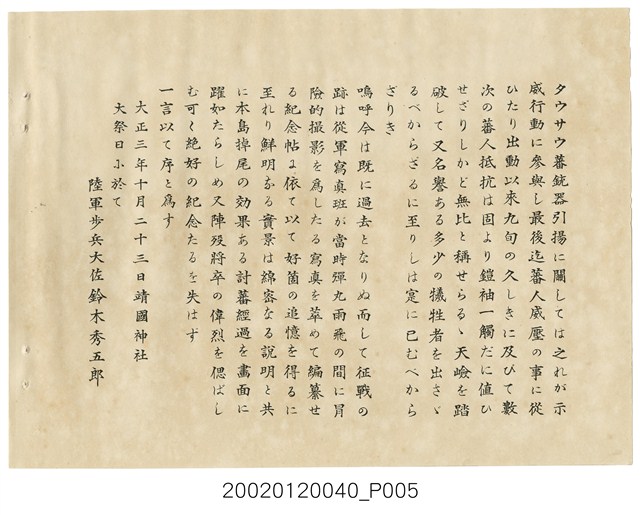 タウサウ蕃銃器引揚に關しては之れが示
威行動に參與し最後迄蕃人威壓の事に從
ひたり出動以來九旬の久しきに及びて數
次の蕃人抵抗は固より鎧袖一觸だに値ひ
せざりしかど無比と稱せらるゝ天嶮を踏
破して又名譽ある多少の犧牲者を出さゞ
るべからざるに至りしは寔に已むべから
ざりき
嗚呼今は既に過去となりぬ而して征戰の
跡は從軍寫眞班が當時彈丸雨飛の間に冐
險的撮影を爲したる寫眞を萃めて編纂せ
る紀念帖に依て以て好箇の追憶を得るに
至れり鮮明なる實景は綿密なる說明と共
に本島掉尾の効果ある討蕃經過を畫面に
躍如たらしめ又陣歿將卒の偉烈を偲ばし
む可く絶好の紀念たるを失はず
一言以て序と爲す
大正三年十月二十三日靖國神社
大祭日に於て
陸軍歩兵大佐鈴木秀五郎
20020120040_P005